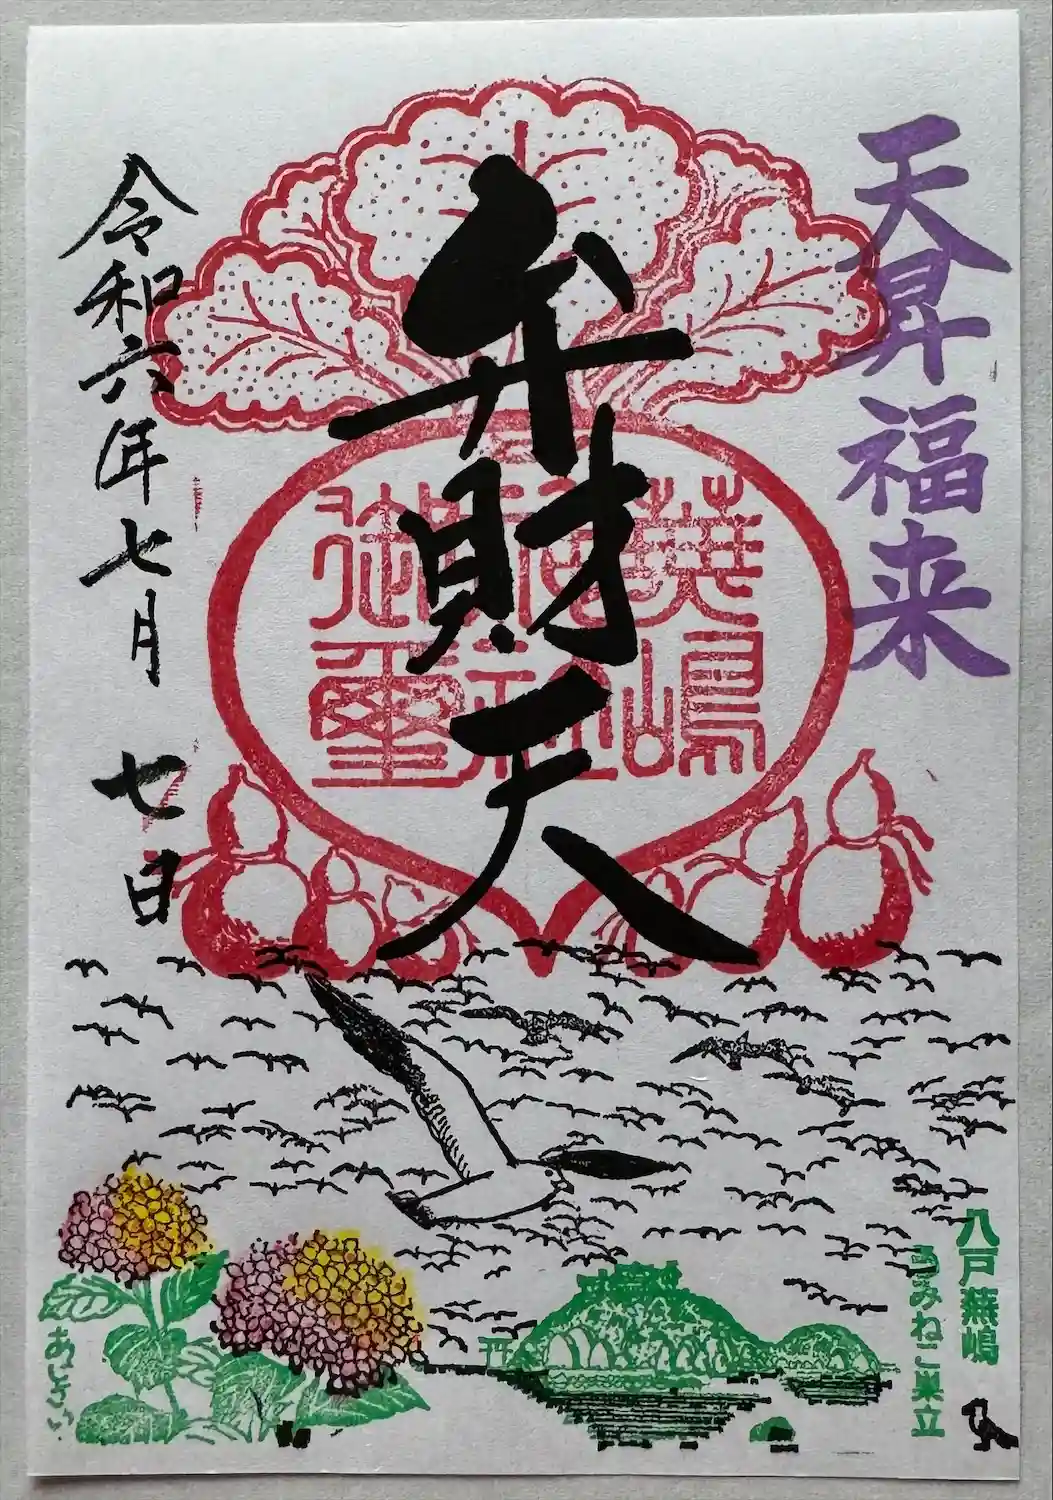 天昇福来
弁財天
蕪嶋
神社
御璽
令和六年七月七日
八戸蕪嶋
うみねこ巣立
あじさい